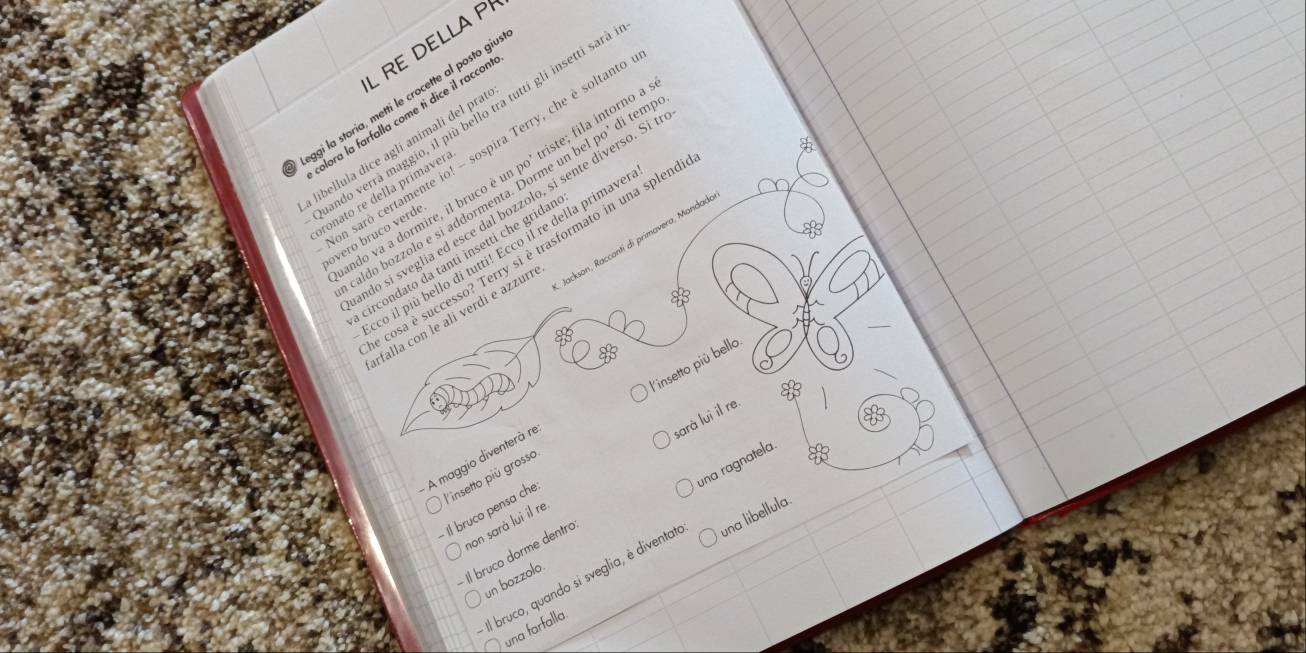 IL RE DELLA
Leggi la storia, metti le crocette al posto giusto
e colora la farfalla come ti dice il racconto.
La libellula dice agli animali del prato:
– Quando verrà maggio, il più bello tra tutti gli insetti sarà in-
coronato re della primavera.
– Non sarò certamente io! – sospira Terry, che è soltanto un
povero bruco verde.
Quando va a dormire, il bruco è un po' triste; fila intorno a sé
un caldo bozzolo e si addormenta. Dorme un bel po' di tempo.
Quando si sveglia ed esce dal bozzolo, si sente diverso. Si tro-
va circondato da tanti insetti che gridano:
– Ecco il più bello di tutti! Ecco il re della primavera!
Che cosa è successo? Terry si è trasformato in una splendida
farfalla con le ali verdi e azzurre.
K. Jackson, Racconti di primavera, Mondadori
– A maggio diventerà re:
l'insetto più grosso.
l'insetto più bello.
– Il bruco pensa che:
non sarà lui il re.
sarà lui il re.
– Il bruco dorme dentro:
un bozzolo.
una ragnatela.
– Il bruco, quando si sveglia, è diventato:
una farfalla.
una libellula.